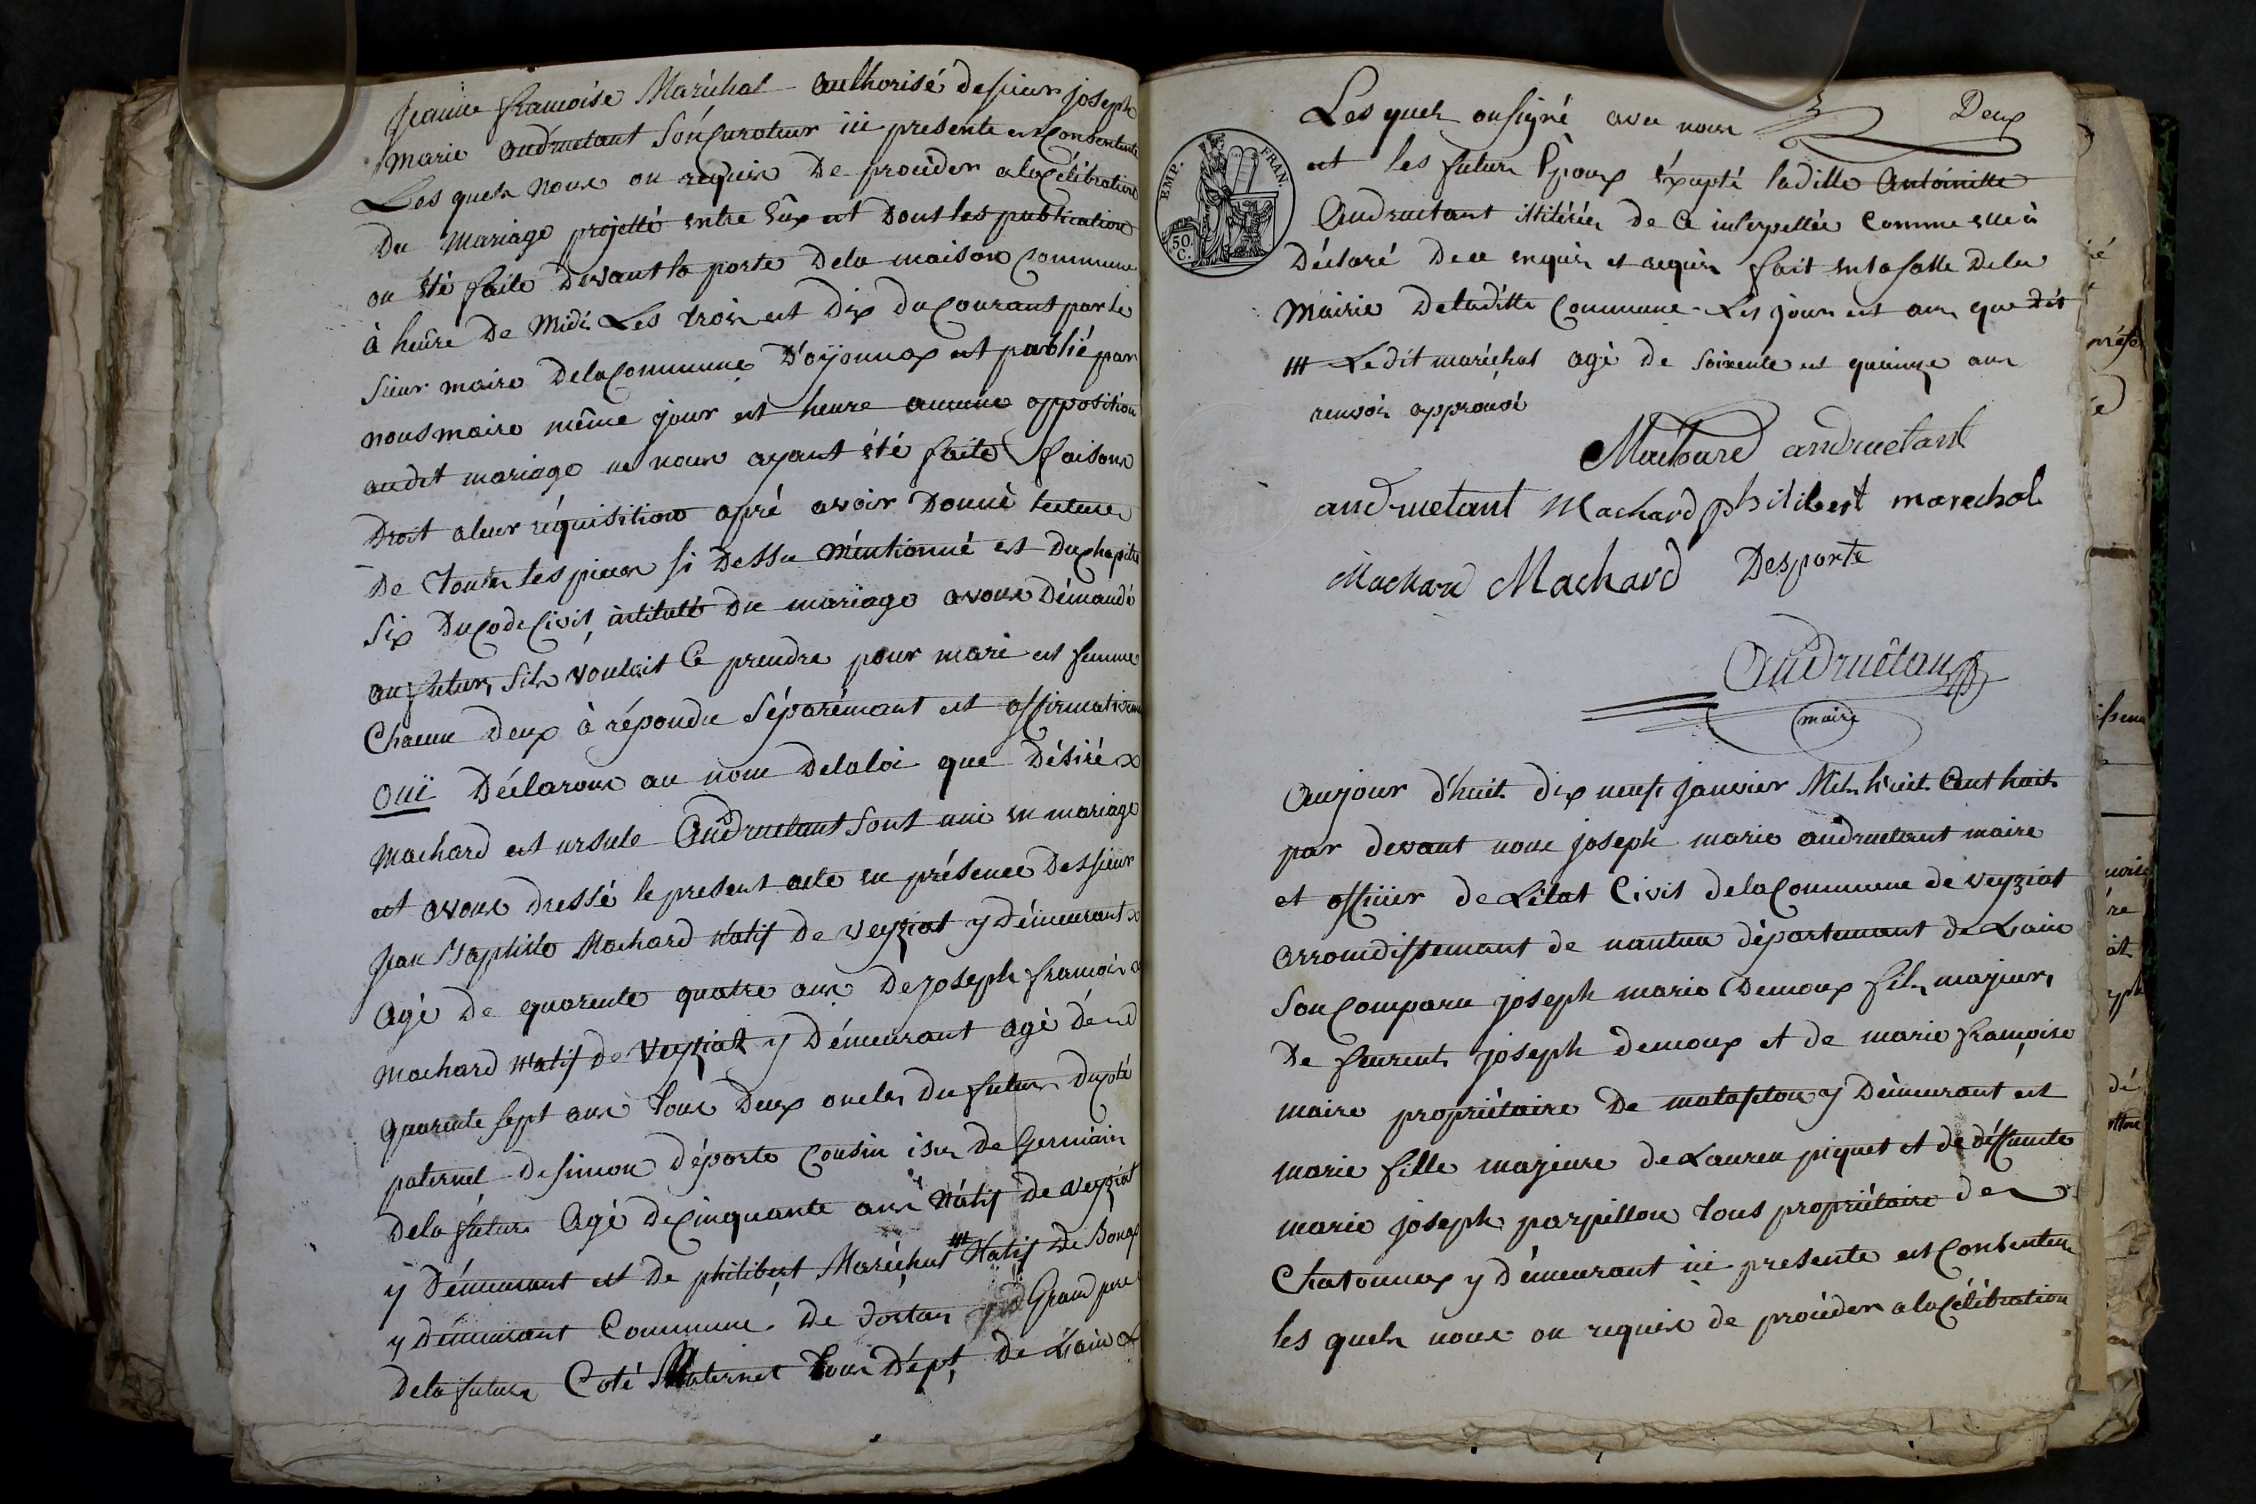 Jeanne françoise Maréchal authorisé desieur joseph
marie andruetant son Curateur ici presente est Consentente
Les quels nous on requis De proceder a la Célébration
Du mariage projetté entre Eux est Dont les publication
on été faite Devant la porte Dela maison Commune
à heure De midi Les trois est Dix Du Courant par le
sieur maire Dela Commune D'oyonnax est publié par
nous maire même jour est heure aucune opposition
audit mariage ne nous ayant été faite faisons
Droit a leur réquisition apré avoir Donné lecture
De toutes les pieces si Dessu mentionné est Du chapitre
Six Du Code Civil intitulé Du mariage avons Démandé
au futurs Sils voulait Ce prendre pour mari est femme
Chacun Deux à répondu Séparémant est affirmativemen
OUI Déclarons au nom Delaloi que Désiré
Machard est ursule Andruetant sont uni en mariage
est avons dressé le present acte en présence Dessieur
Jean Baptiste Machard Natif de veyziat y Démeurant
Agé De quarente quatre ans De joseph françois
Machard Natif de Veyziat y Démeurant agé de
quarente sept ans tous Deux oncles Du futur du coté
paternel De simon déporte Cousin isu De Germain
De la future Agé De Cinquante ans Nátif De veyziat
y Démeurant est De philibert Maréchal ### Natif De Bonaz
y Démeurant Commune De Dortan Grand pere
De la future Coté Maternel tous Dépt, De Lain
Les quels on signé avec nous Deux
EMP. FRAN.
50 C.
est les futurs Epoux éxcepté ladille Antoinette
Andruetant illitérée De Ce interpellée Comme elle à
Déclaré De ce enquis et requis fait en la salle De la
Mairie De ladille Commune Les jours est ans que Dit
### Ledit maréchal agé De soixente est quinze ans
renvoi approuvé
Machard andruetant
andruetant Machard philibert marechal
Machard Machard Desporte
Andruétan
maire
Aujour d'huit dix neuf janvier Mil huit Cent huit
par devant nous joseph marie andruetant maire
et officier de Létat Civil dela Commune de veyziat
arrondissemant de nantua départemant de Lain
Son Comparu joseph marie Demoux fils majeur
De Laurent joseph demoux et de marie françoise
maire propriétaire De matafelon y Démeurant est
marie fille majeure de Lauren piquet et de déffunte
marie joseph parpillon tous propriétaire de
Chatonnax y Démeurant ici presente est Consenten
les quels nous on requis de procéder a la Célébration